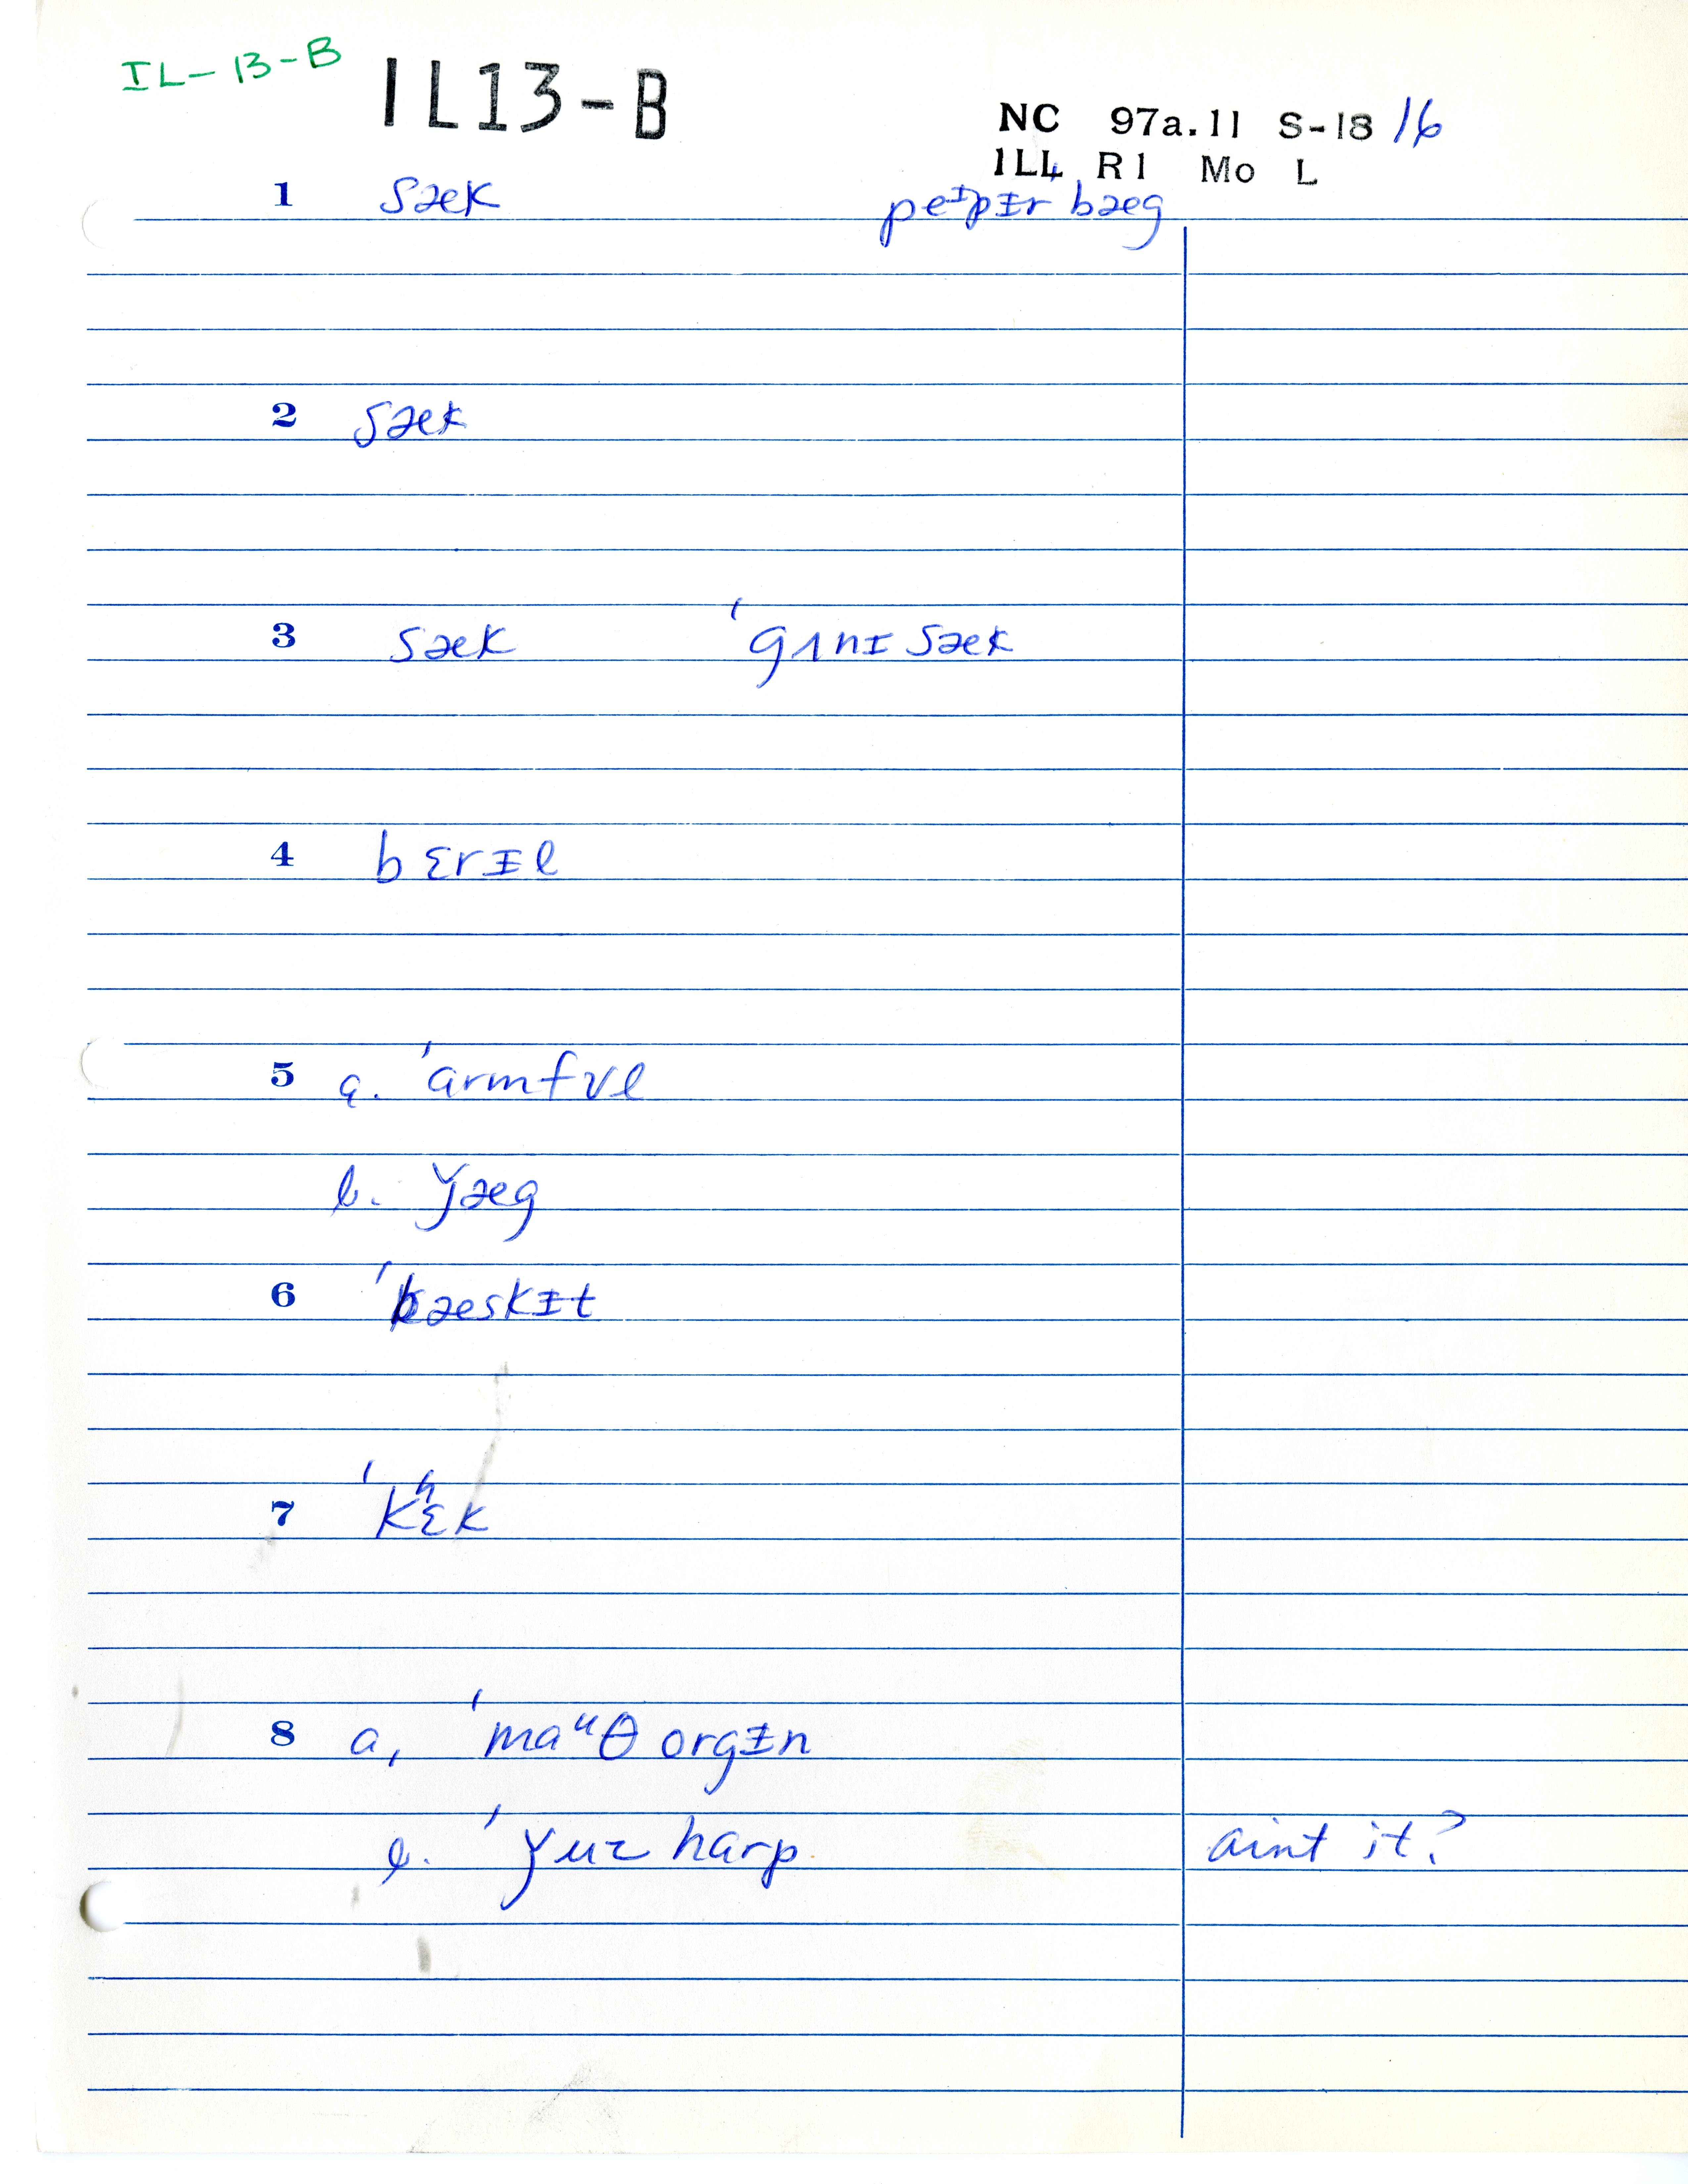 IL-13-B
IL13-B
NC 97a.11 S-18 16
ILL4 R1 Mo L
1 sæk peᶦpɨr bæg
2 sæk
3 sæk ˈgʌnɪ sæk
4 bɛrɨl
5 a. ˈarmfʊl
b. ǰæg
6 ˈbæskɨt
7 ˈkʰɛk
8 a, ˈmaᵘθ orgɨn
b. ˈǰuz harp aint it?